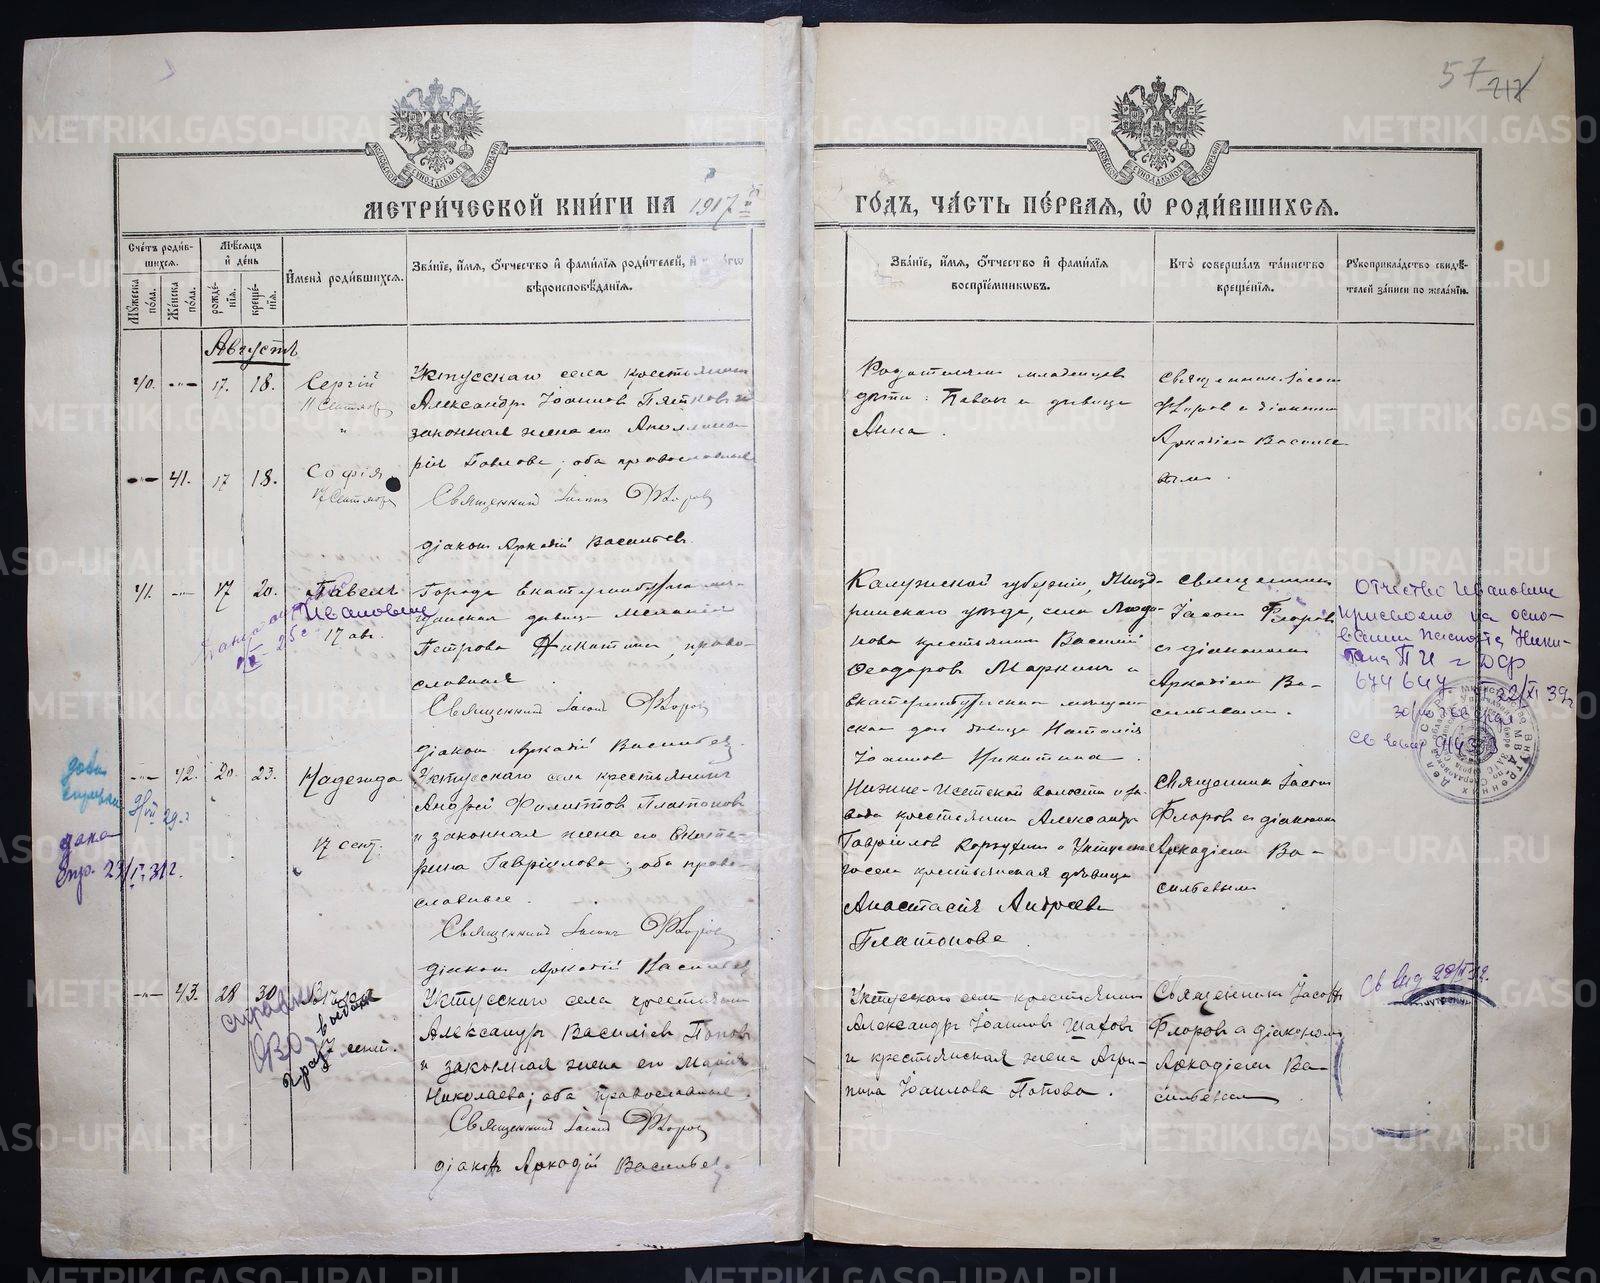 57
212
МЕТРИ́ЧЕСКОЙ КНИ́ГИ НА 1917 й
ГО́ДЪ, ЧА́СТЬ ПЕ́РВАЯ, Ѡ҆ РОДИ́ВШИХСЯ.
Сче́тъ роди́в-
шихся.
Мꙋ́жеска по́ла.
Же́нска по́ла.
Мѣ́сяцъ и҆ де́нь
рожде́нїя.
креще́нїя.
И҆мена̀ роди́вшихся.
Зва́нїе, и҆́мя, ѻ҆́тчество и҆ фами́лїя роди́телей, и҆
вѣроисповѣ́данїя.
Зва́нїе, и҆́мя, ѻ҆́тчество и҆ фами́лїя
воспрїе́мниковъ.
Кто̀ соверша́лъ та́инство
креще́нїя.
Рꙋкоприкла́дство свидѣ́-
телей за́писи по жела́нїю.
Августъ
40. -"- 17. 18. Сергій
11 Сентября
Уктусскаго села крестьянинъ
Александръ Іоанновъ Пятковъ и
законная жена его Аполлина-
рія Павлова; оба православные
Священникъ Іасонъ Флоровъ
діаконъ Аркадій Васильевъ
Родители младенцевъ
дѣти: Павелъ и дѣвица
Анна.
Священник Іасон
Флоров с діаконом
Аркадіем Василье-
вым.
-"- 41. 17 18. Софія
17 Сентября
41. -"- 17 20. Павелъ
Ивановичъ
17 авг.
Города Екатеринбурга мѣ-
щанская дѣвица Меланія
Петрова Никитина, право-
славная.
Священникъ Іасонъ Флоровъ
діаконъ Аркадій Васильевъ
Калужской губерніи, Жизд-
ринскаго уѣзда, села
крестьянинъ Василій
Ѳеодоровъ Маркинъ и
Екатеринбургская мѣщан-
ская дочь дѣвица Наталія
Іоаннова Никитина.
Священник
Іасон Флоров
с діаконом
Аркадіем Ва-
сильевым.
Отчество Иванович
присвоено на осно-
вании паспорта Ники-
тина П И г ДФ
674647
22/XI 39г
-"- 42. 20. 23. Надежда
17 сент.
Уктусскаго села крестьянинъ
Андрей Филипповъ Платоновъ
и законная жена его Екате-
рина Гавріилова; оба право-
славные.
Священникъ Іасонъ Флоровъ
діаконъ Аркадій Васильевъ
Нижне-Исетской волости и за-
вода крестьянинъ Александръ
Гавріиловъ и Уктусска-
го села крестьянская дѣвица
Анастасія Андреева
Платонова.
Священник Іасон
Флоров с діаконом
Аркадіем Ва-
сильевым
дана
спр. 23/IV 31г.
-"- 43. 28 30.
17 сент.
справка
Уктусскаго села крестьянинъ
Александръ Василіевъ Поповъ
и законная жена его Марія
Николаева; оба православные.
Священникъ Іасонъ Флоровъ
діаконъ Аркадій Васильевъ
Уктусскаго села крестьянинъ
Александръ Іоанновъ Шаховъ
и крестьянская жена Агрип-
пина Іоаннова Попова.
Священник Іасон
Флоров с діаконом
Аркадіем Ва-
сильевым